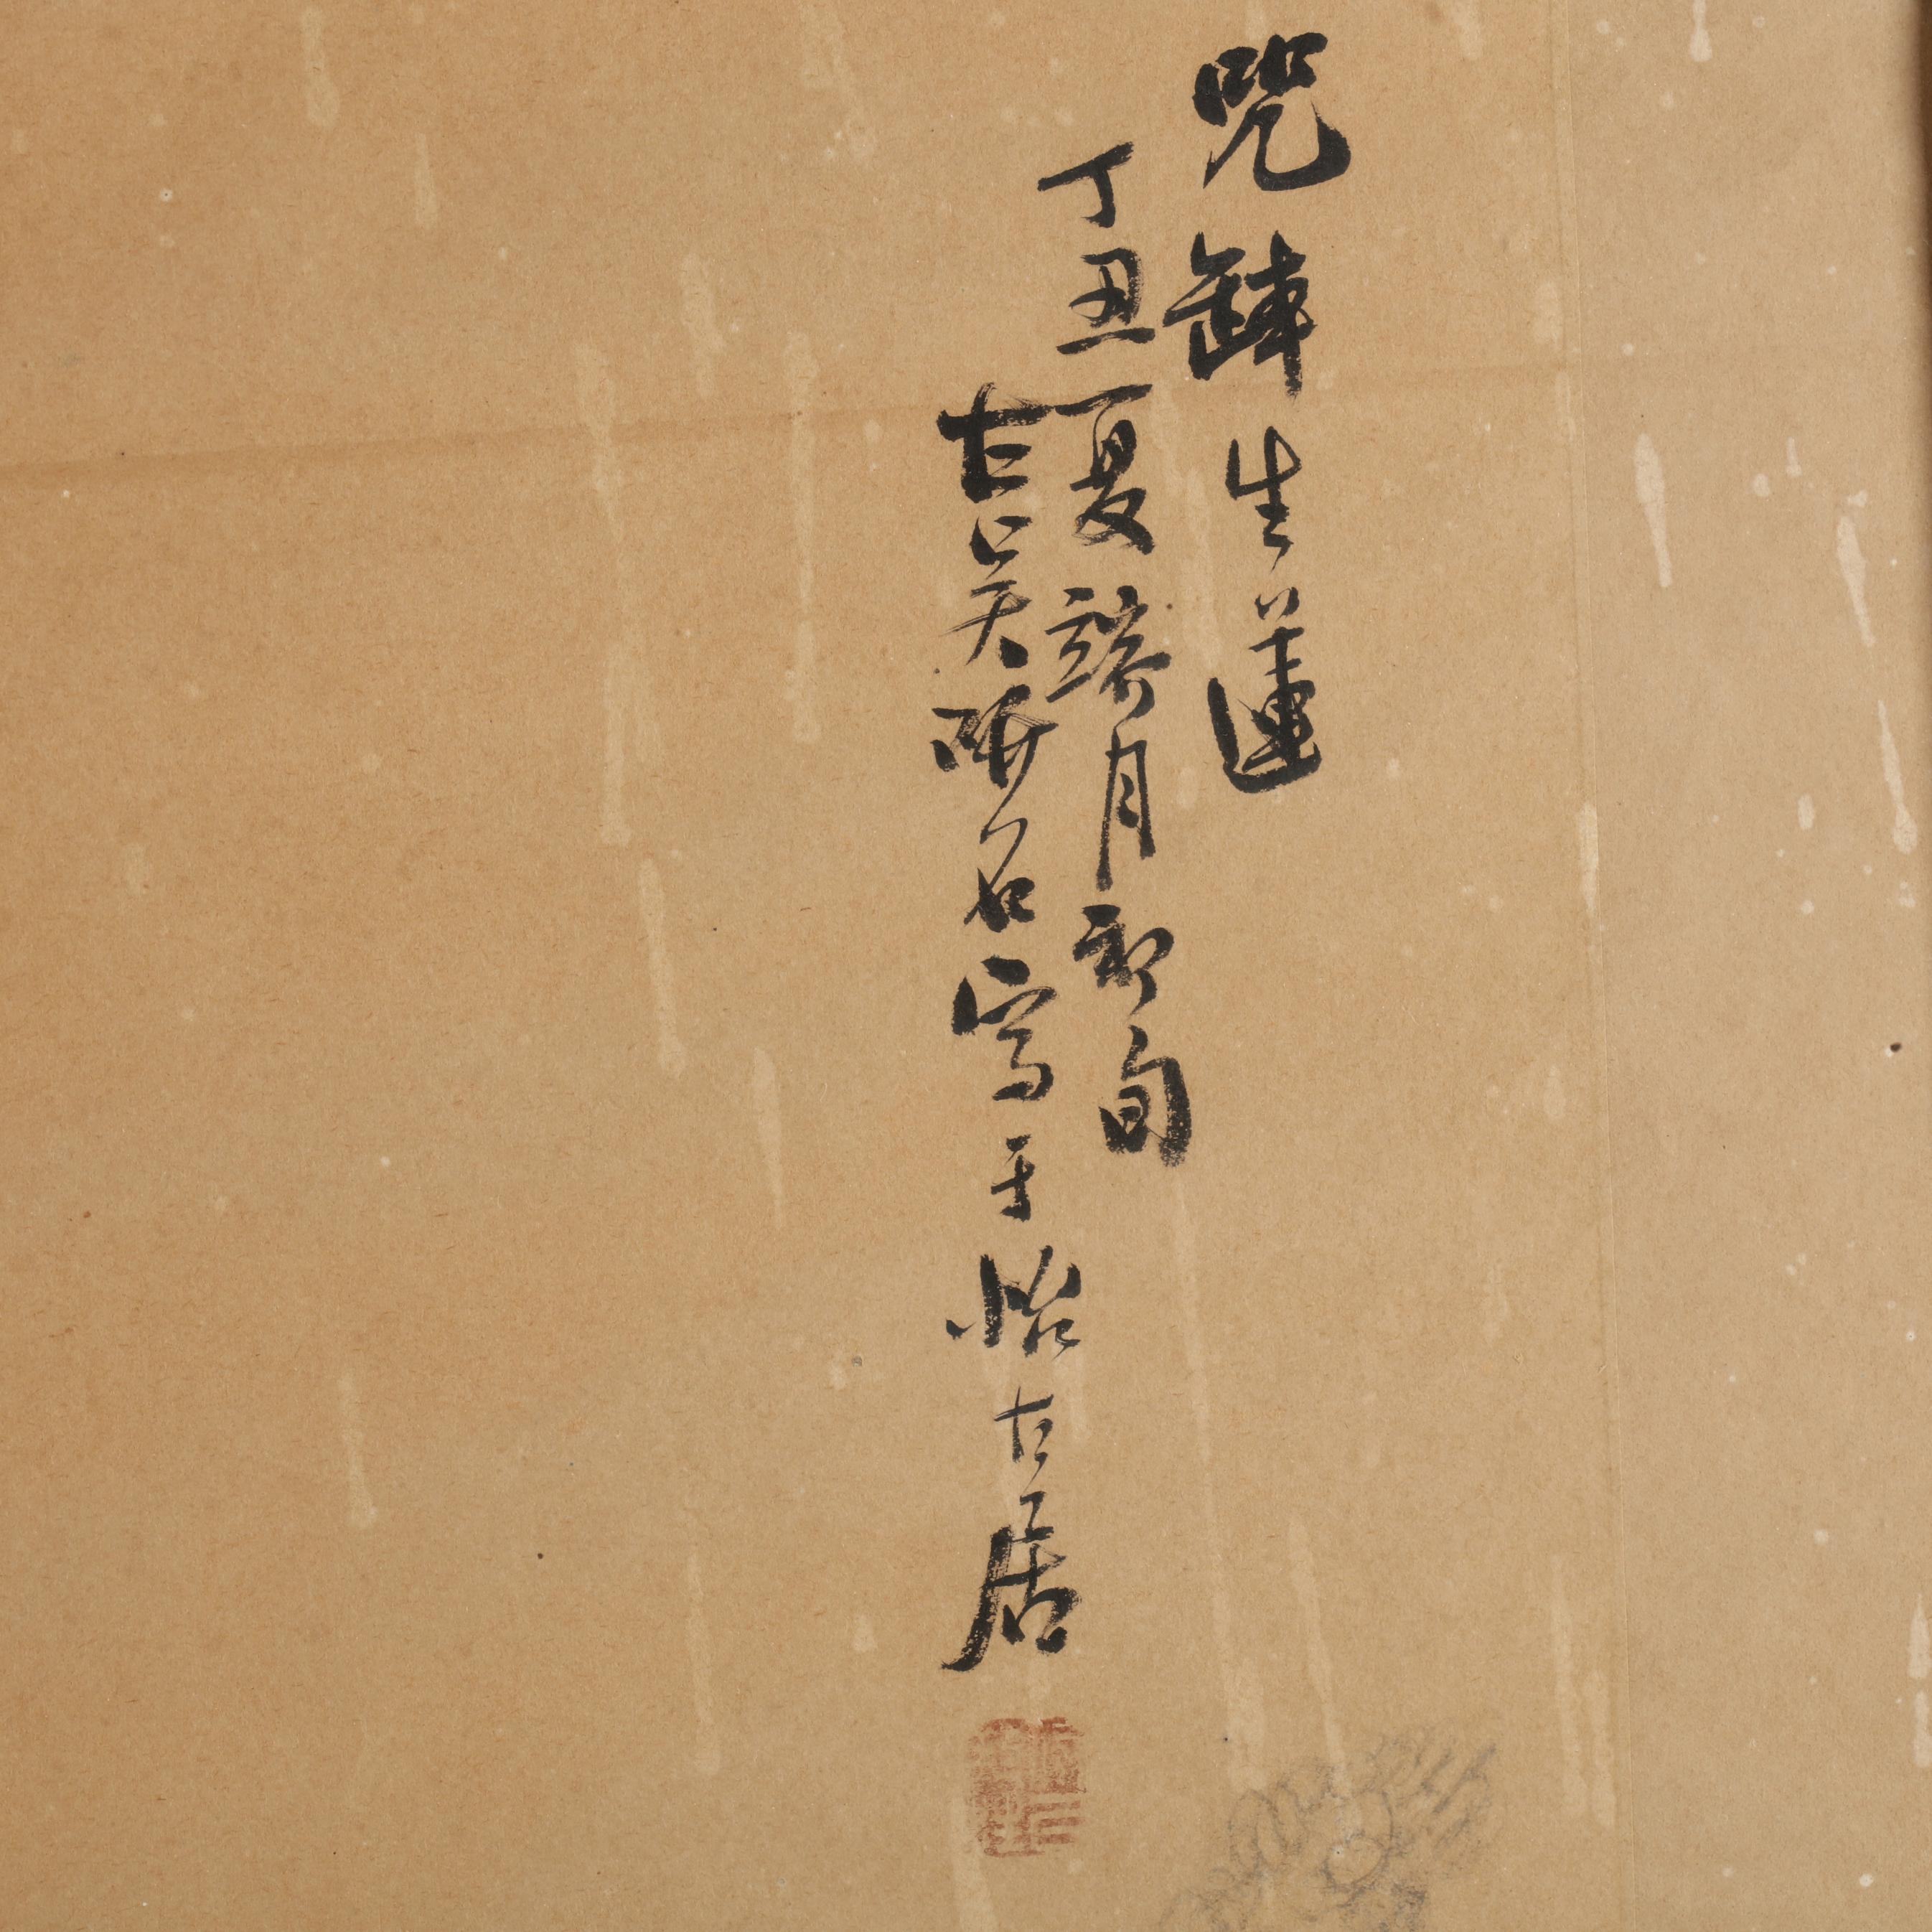 咒缽生蓮
丁丑夏端月初旬
古吳研石寫于怡古居